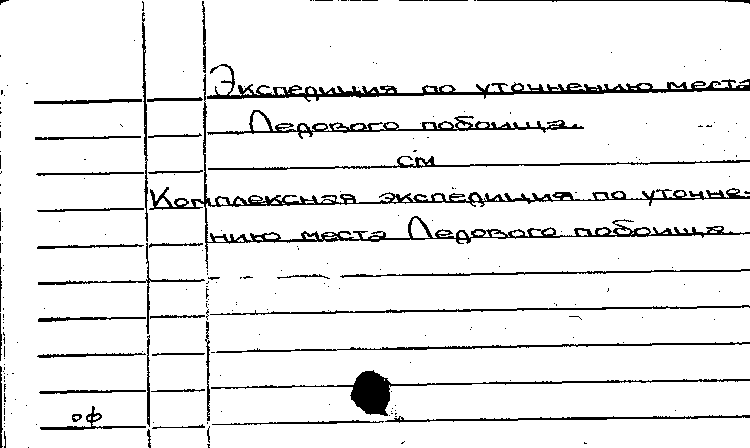 Экспедиция по уточнению места
Ледового побоища.
см
Комплексная экспедиция по уточне-
нию места Ледового побоища.
оф